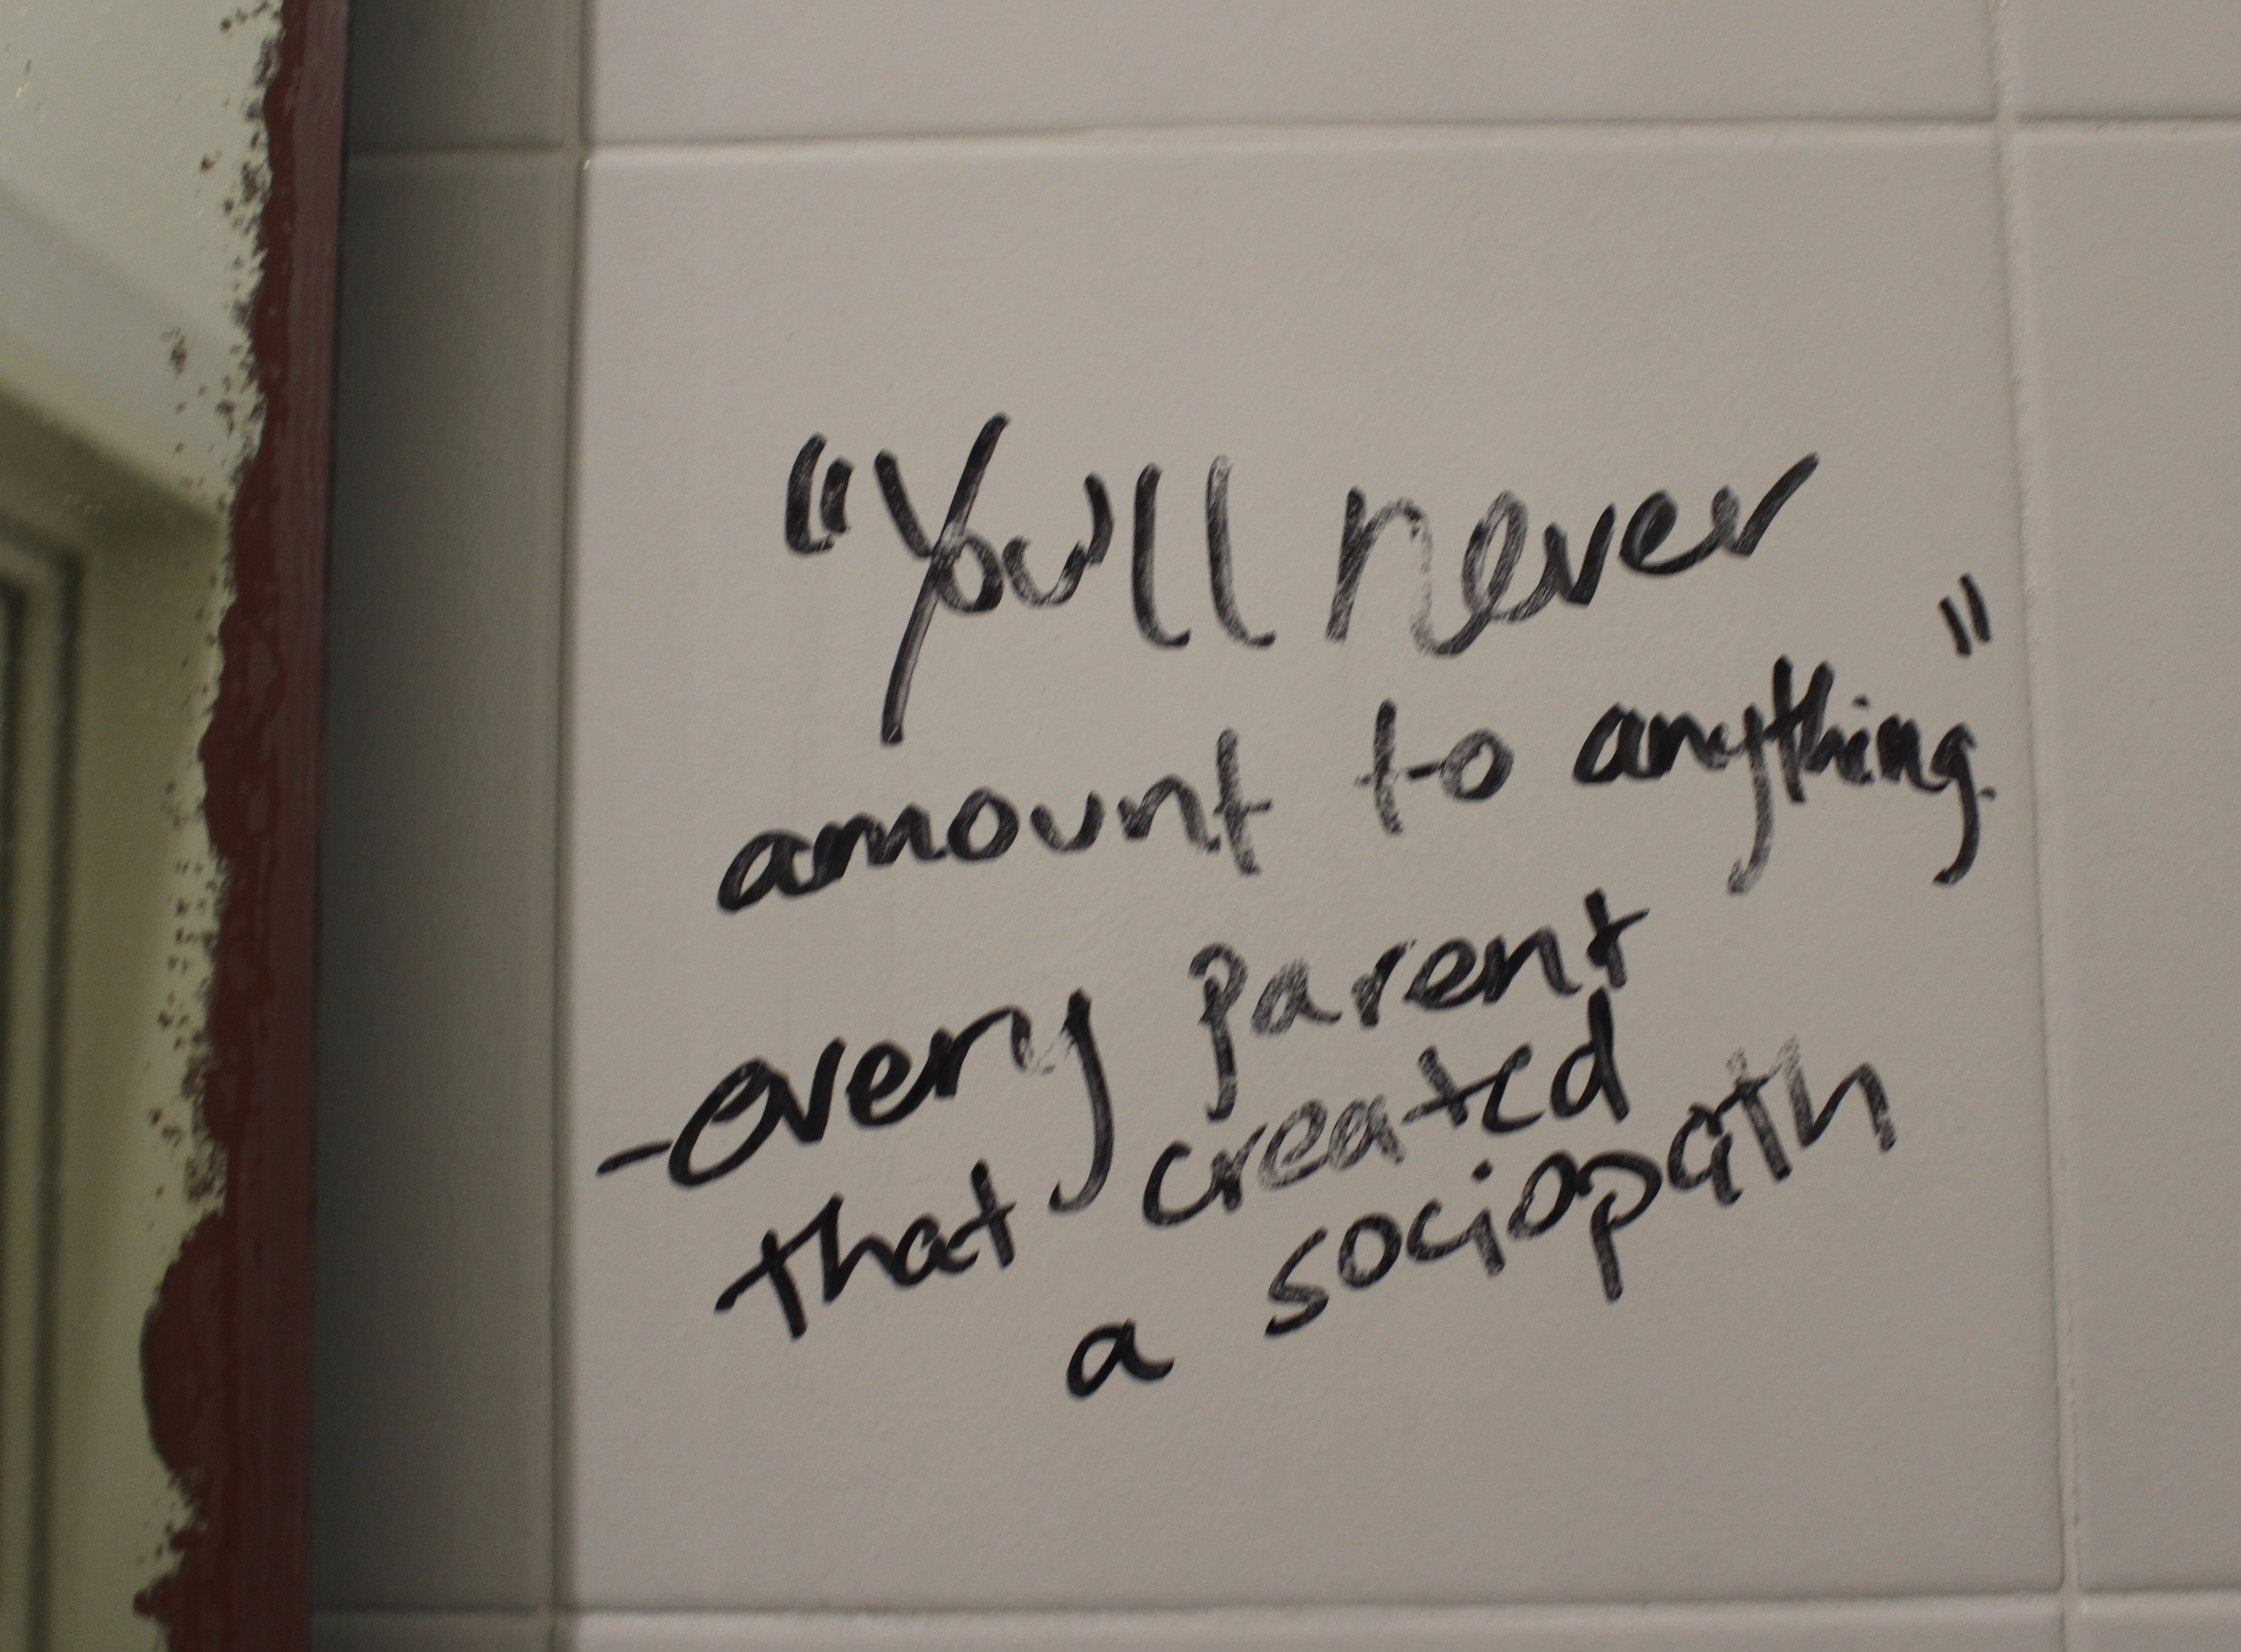 "You'll never
amount to anything."
-every parent
that created
a sociopath